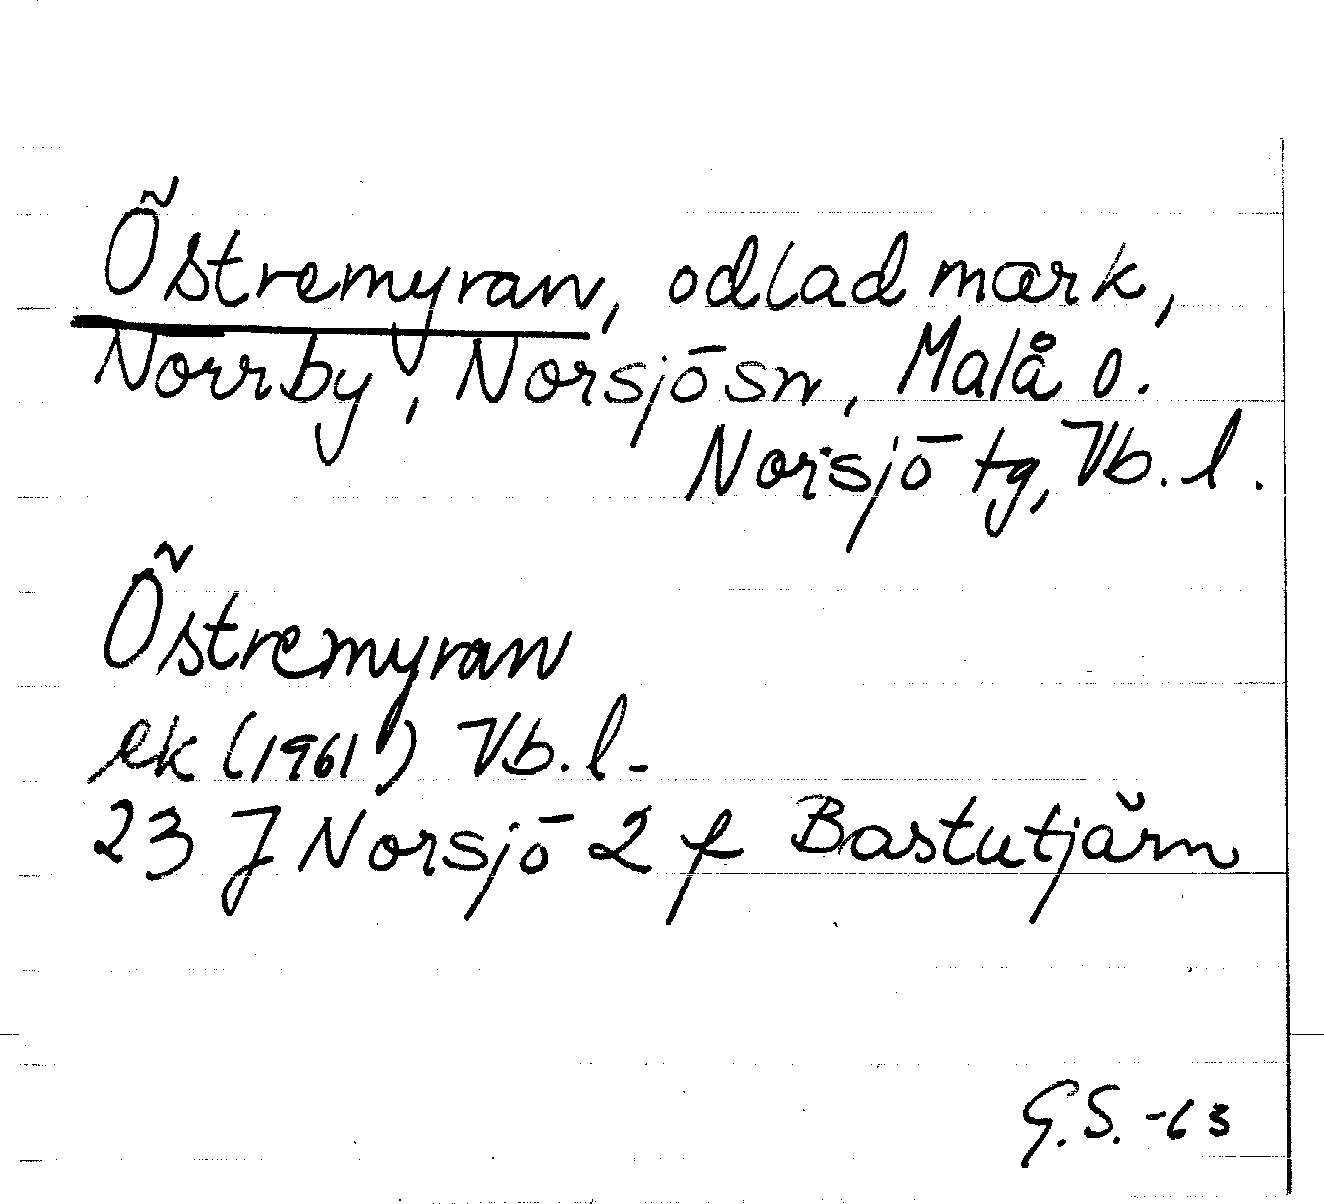 Östremyran, odlad mark,
Norrby, Norsjö sn, Malå o.
Norsjö tg, Vb. l.
Östremyran
ek (1961) Vb. l.
23 J Norsjö 2 f Bastutjärn
G.S. -63